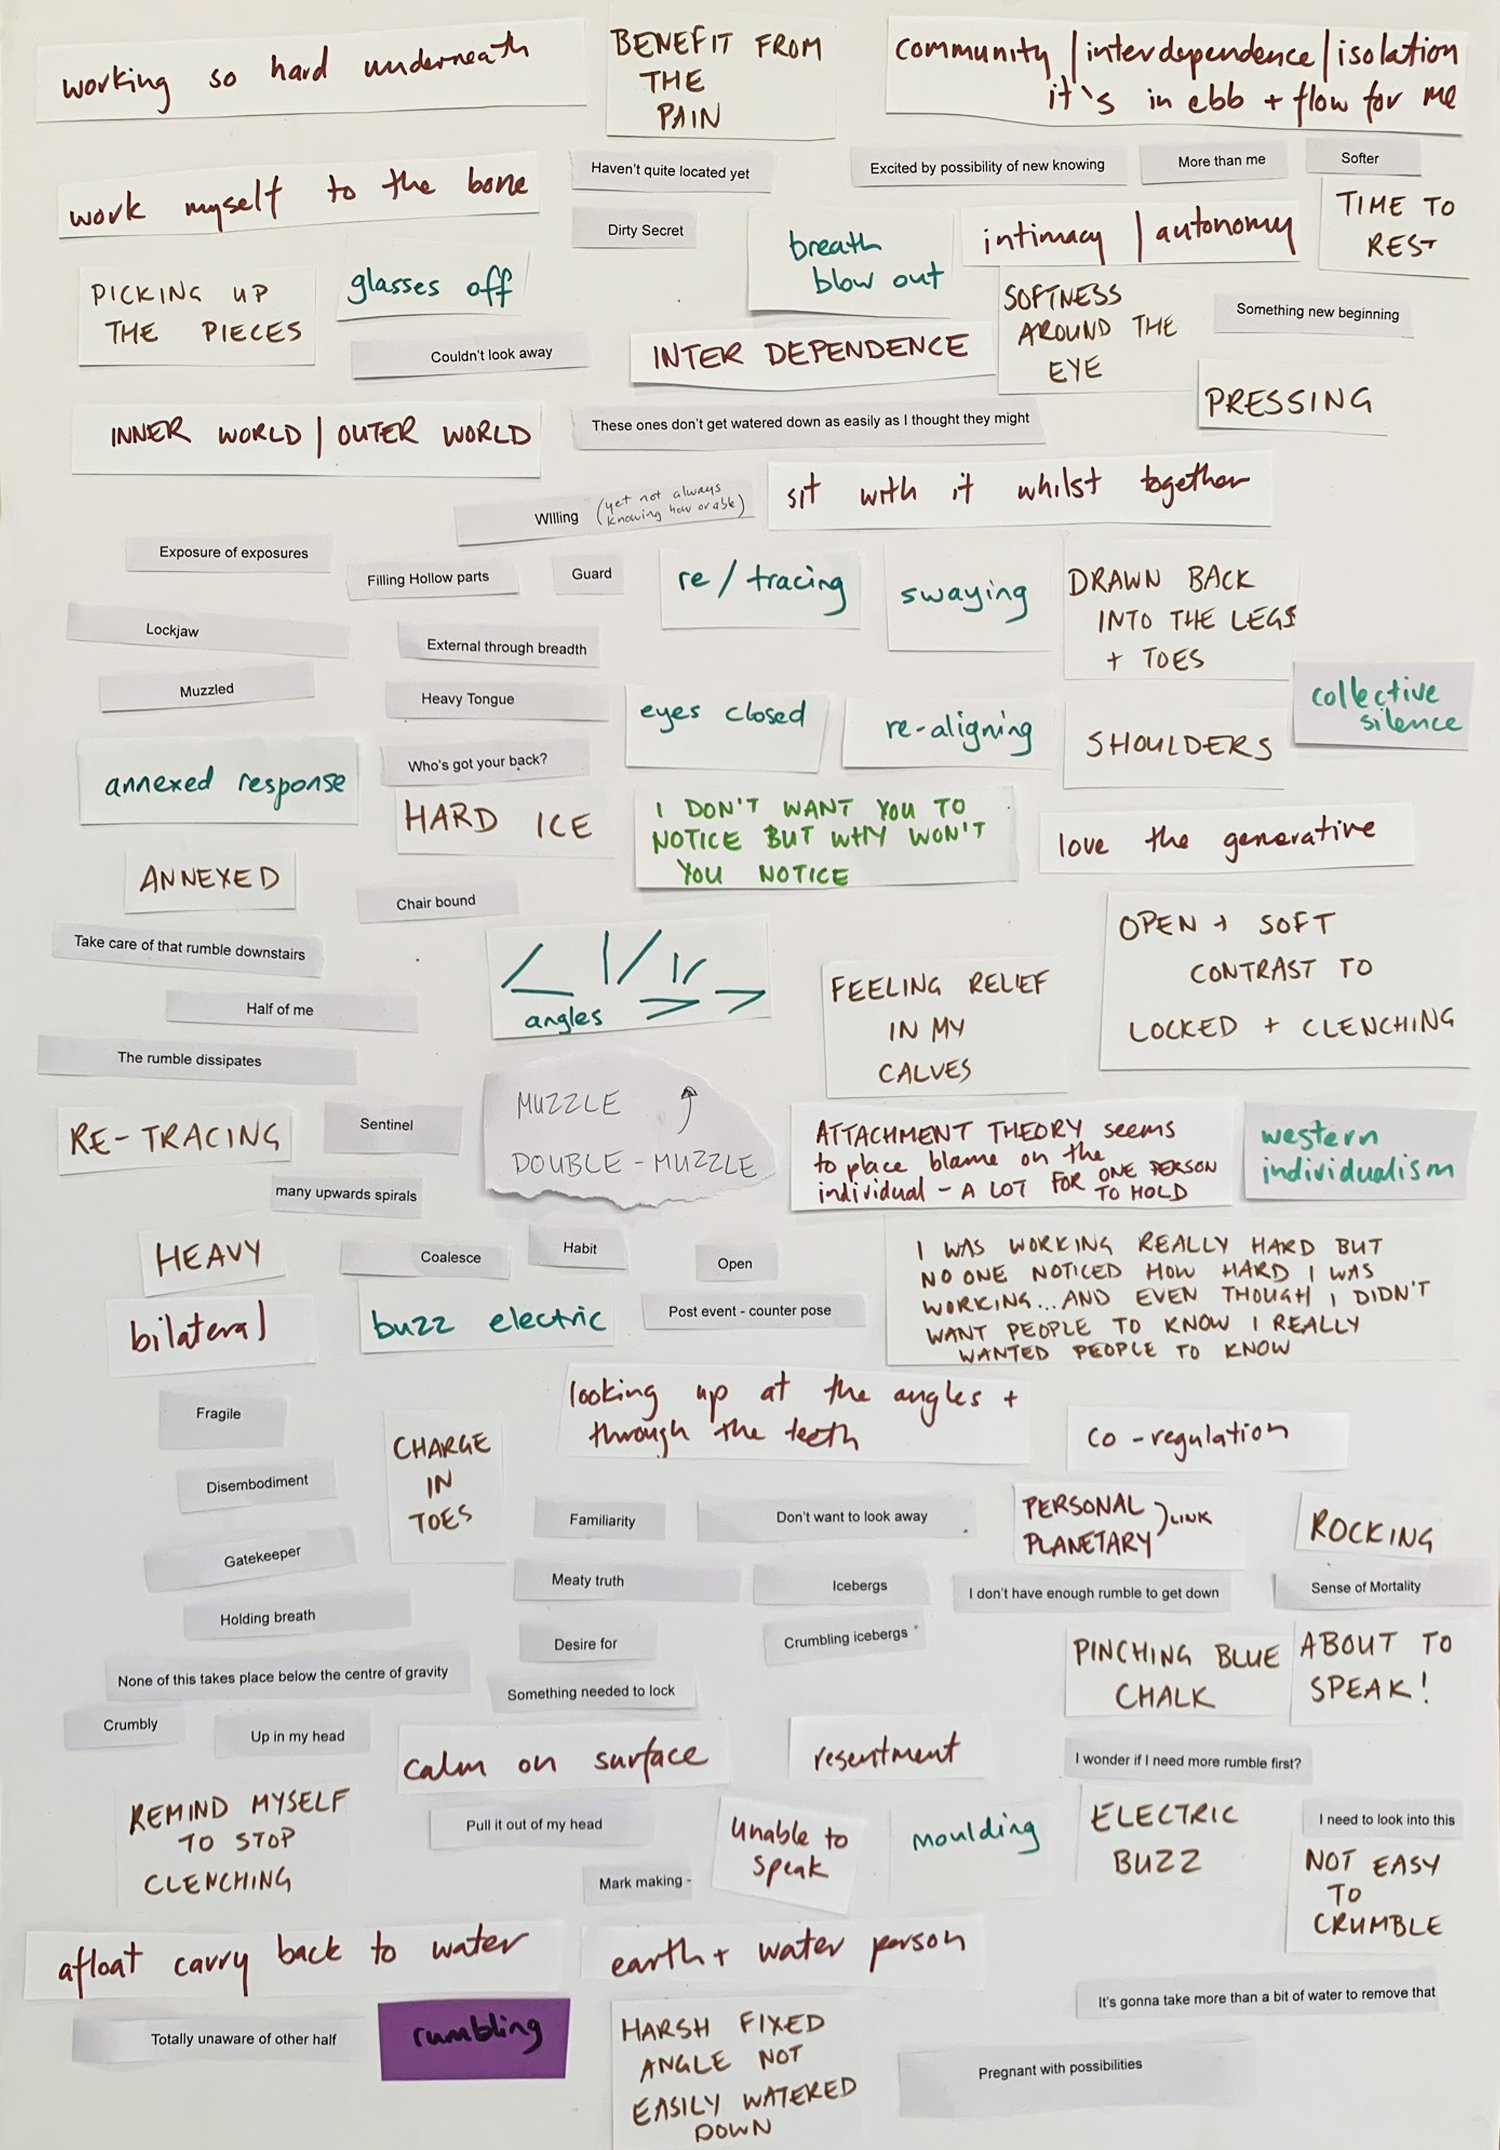 working so hard underneath
BENEFIT FROM
THE
PAIN
community / interdependence / isolation
it's in ebb + flow for me
work myself to the bone
Haven't quite located yet
Excited by possibility of new knowing
More than me
Softer
Dirty Secret
breath
blow out
intimacy / autonomy
TIME TO
REST
PICKING UP
THE PIECES
glasses off
SOFTNESS
AROUND THE
EYE
Something new beginning
Couldn't look away
INTER DEPENDENCE
PRESSING
INNER WORLD / OUTER WORLD
These ones don't get watered down as easily as I thought they might
sit with it whilst together
WIlling (yet not always
knowing how or able)
Exposure of exposures
Filling Hollow parts
Guard
re / tracing
swaying
DRAWN BACK
INTO THE LEGS
+ TOES
Lockjaw
External through breadth
Muzzled
Heavy Tongue
eyes closed
re-aligning
SHOULDERS
collective
silence
annexed response
Who's got your back?
HARD ICE
I DON'T WANT YOU TO
NOTICE BUT WHY WON'T
YOU NOTICE
love the generative
ANNEXED
Chair bound
Take care of that rumble downstairs
angles
FEELING RELIEF
IN MY
CALVES
OPEN + SOFT
CONTRAST TO
LOCKED + CLENCHING
Half of me
The rumble dissipates
RE-TRACING
Sentinel
MUZZLE
DOUBLE-MUZZLE
ATTACHMENT THEORY seems
to place blame on the
individual - A LOT FOR ONE PERSON
TO HOLD
western
individualism
many upwards spirals
HEAVY
Coalesce
Habit
Open
I WAS WORKING REALLY HARD BUT
NO ONE NOTICED HOW HARD I WAS
WORKING... AND EVEN THOUGH I DIDN'T
WANT PEOPLE TO KNOW I REALLY
WANTED PEOPLE TO KNOW
bilateral
buzz electric
Post event - counter pose
looking up at the angles +
through the teeth
Fragile
CHARGE
IN
TOES
co-regulation
Disembodiment
Familiarity
Don't want to look away
PERSONAL
PLANETARY
) LINK
ROCKING
Gatekeeper
Meaty truth
Icebergs
I don't have enough rumble to get down
Sense of Mortality
Holding breath
Desire for
Crumbling icebergs
PINCHING BLUE
CHALK
ABOUT TO
SPEAK!
None of this takes place below the centre of gravity
Something needed to lock
Crumbly
Up in my head
calm on surface
resentment
I wonder if I need more rumble first?
REMIND MYSELF
TO STOP
CLENCHING
Pull it out of my head
Unable to
speak
moulding
ELECTRIC
BUZZ
I need to look into this
NOT EASY
TO
CRUMBLE
Mark making -
afloat carry back to water
earth + water person
It's gonna take more than a bit of water to remove that
Totally unaware of other half
rumbling
HARSH FIXED
ANGLE NOT
EASILY WATERED
DOWN
Pregnant with possibilities